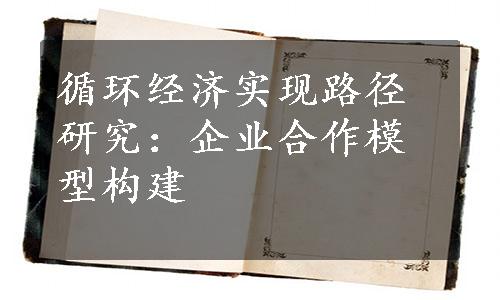 循环经济实现路径
研究：企业合作模
型构建